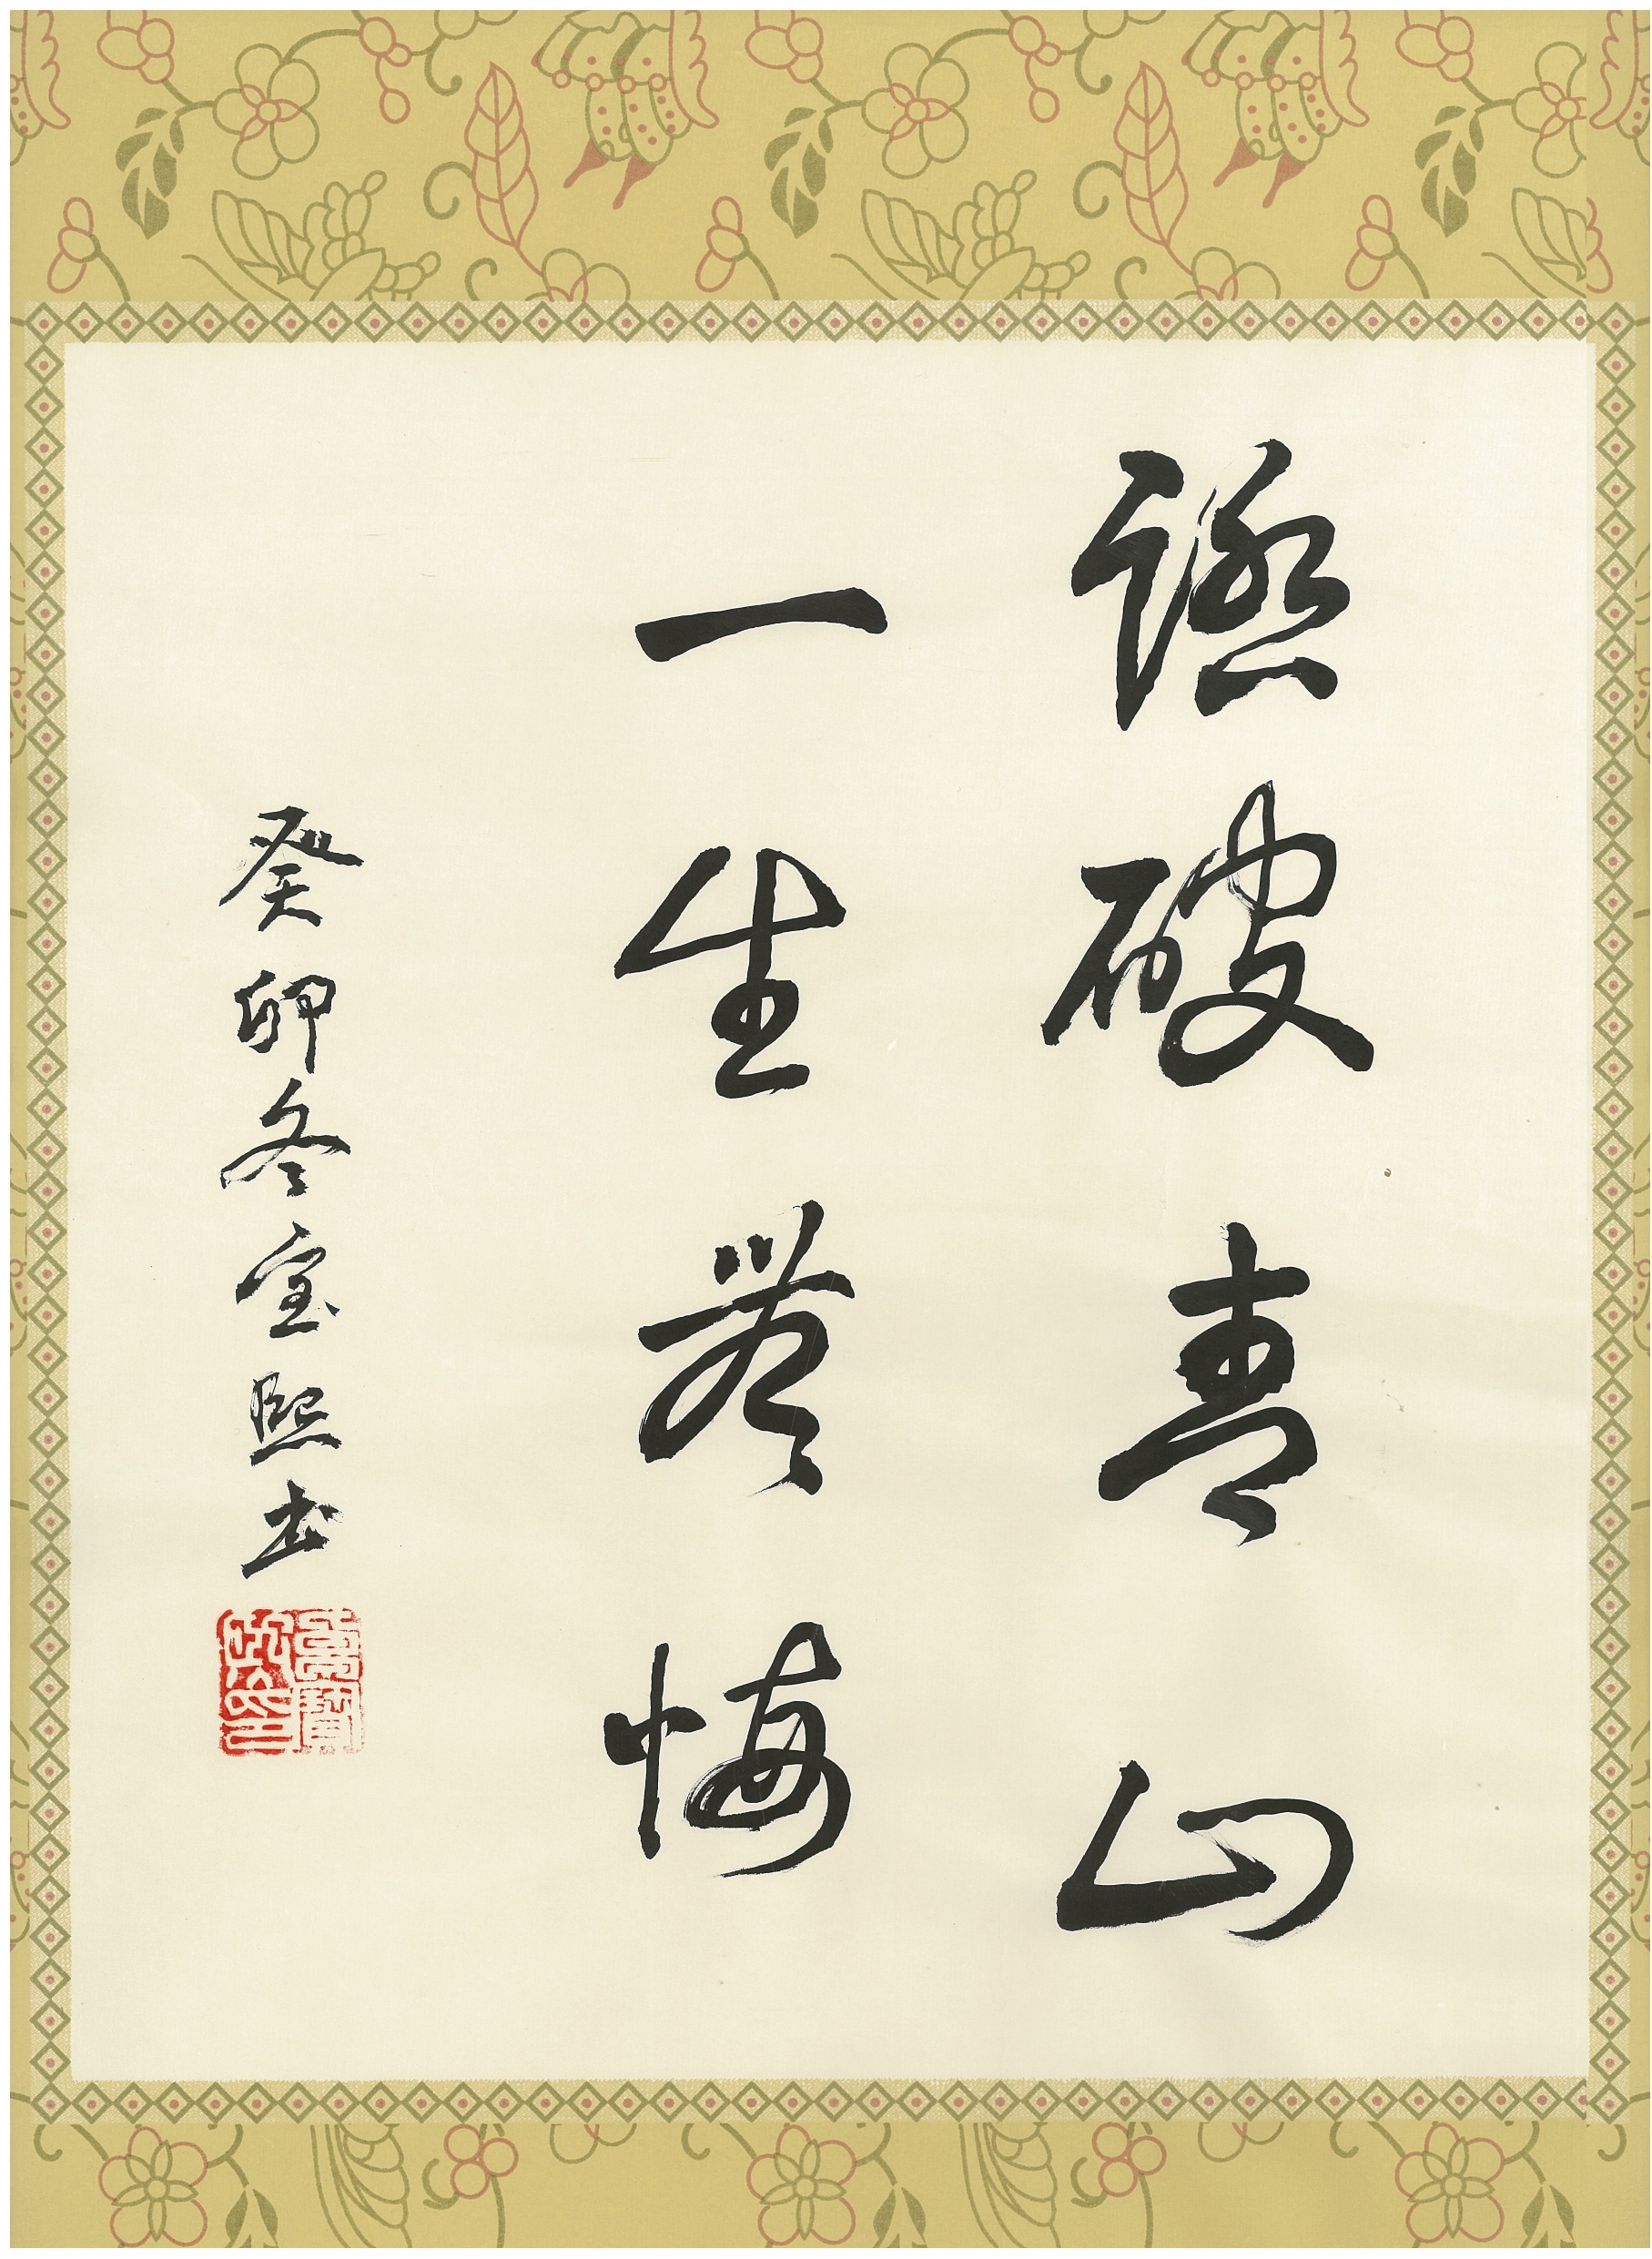 踏破青山
一生無悔
癸卯冬宝熙書